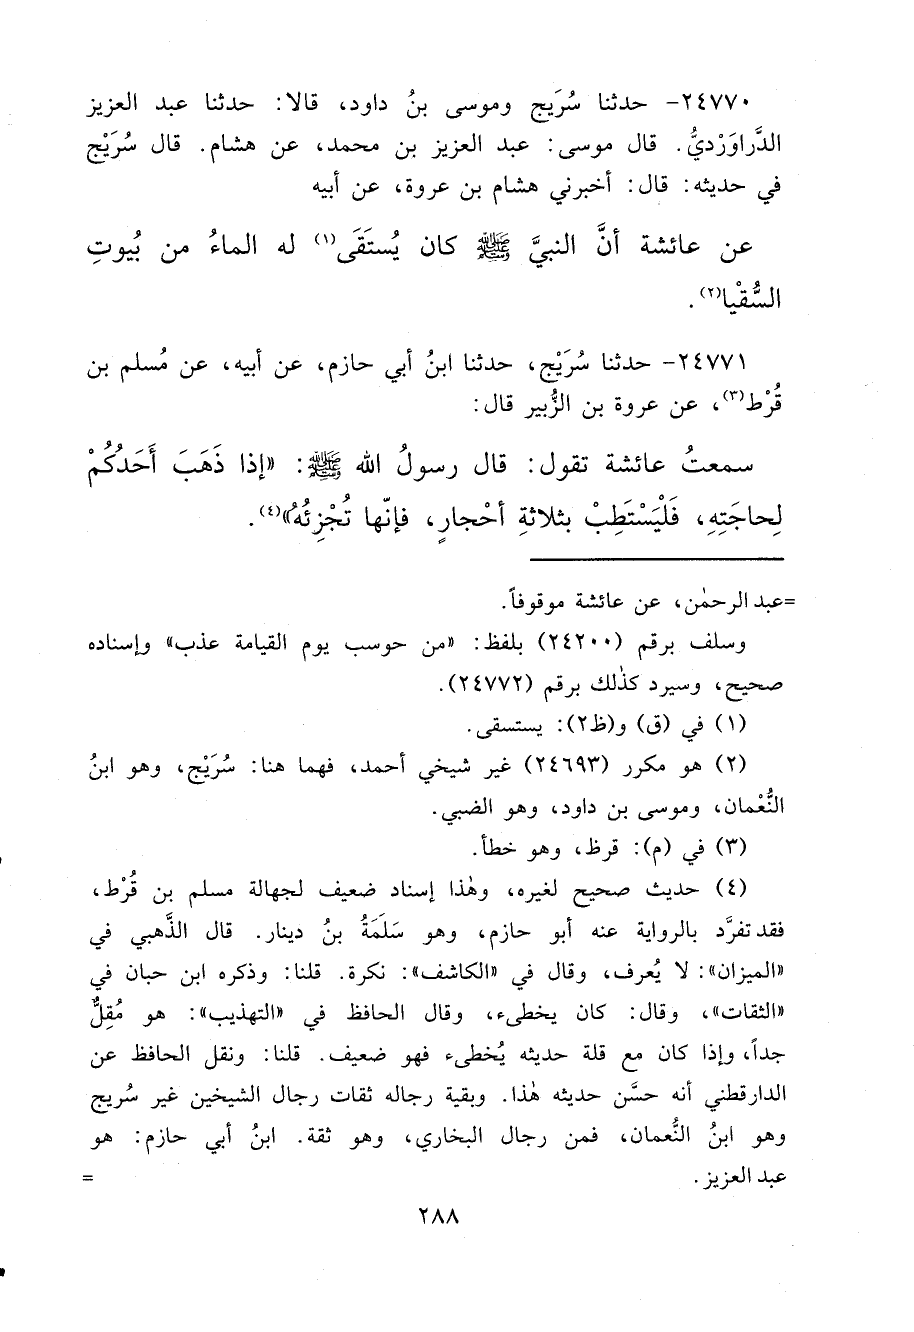 ٢٤٧٧٠- حدثنا سُرَيج وموسى بنُ داود، قالا: حدثنا عبد العزيز
الدَّراوَرْديُّ. قال موسى: عبد العزيز بن محمد، عن هشام. قال سُرَيْج
في حديثه: قال: أخبرني هشام بن عروة، عن أبيه
عن عائشة أنَّ النبيَّ ﷺ كان يُستَقَى(١) له الماءُ من بُيوتِ
السُّقْيا(٢).
٢٤٧٧١- حدثنا سُرَيْج، حدثنا ابنُ أبي حازم، عن أبيه، عن مُسلم بن
قُرْط(٣)، عن عروة بن الزُّبير قال:
سمعتُ عائشة تقول: قال رسولُ الله ﷺ: «إذا ذَهَبَ أَحَدُكُمْ
لِحاجَتِهِ، فَلْيَسْتَطِبْ بثلاثةِ أحْجارٍ، فإنّها تُجْزِئُهُ»(٤).
=عبد الرحمٰن، عن عائشة موقوفاً.
وسلف برقم (٢٤٢٠٠) بلفظ: «من حوسب يوم القيامة عذب» وإسناده
صحيح، وسيرد كذٰلك برقم (٢٤٧٧٢).
(١) في (ق) و(ظ٢): يستسقى.
(٢) هو مكرر (٢٤٦٩٣) غير شيخي أحمد، فهما هنا: سُرَيْج، وهو ابنُ
النُّعْمان، وموسى بن داود، وهو الضبي.
(٣) في (م): قرظ، وهو خطأ.
(٤) حديث صحيح لغيره، وهٰذا إسناد ضعيف لجهالة مسلم بن قُرْط،
فقد تفرَّد بالرواية عنه أبو حازم، وهو سَلَمَةُ بنُ دينار. قال الذَّهبي في
«الميزان»: لا يُعرف، وقال في «الكاشف»: نكرة. قلنا: وذكره ابن حبان في
«الثقات»، وقال: كان يخطىء، وقال الحافظ في «التهذيب»: هو مُقِلٌّ
جداً، وإذا كان مع قلة حديثه يُخطىء فهو ضعيف. قلنا: ونقل الحافظ عن
الدارقطني أنه حسَّن حديثه هٰذا. وبقية رجاله ثقات رجال الشيخين غير سُريج
وهو ابنُ النُّعمان، فمن رجال البخاري، وهو ثقة. ابنُ أبي حازم: هو
عبد العزيز. =
٢٨٨